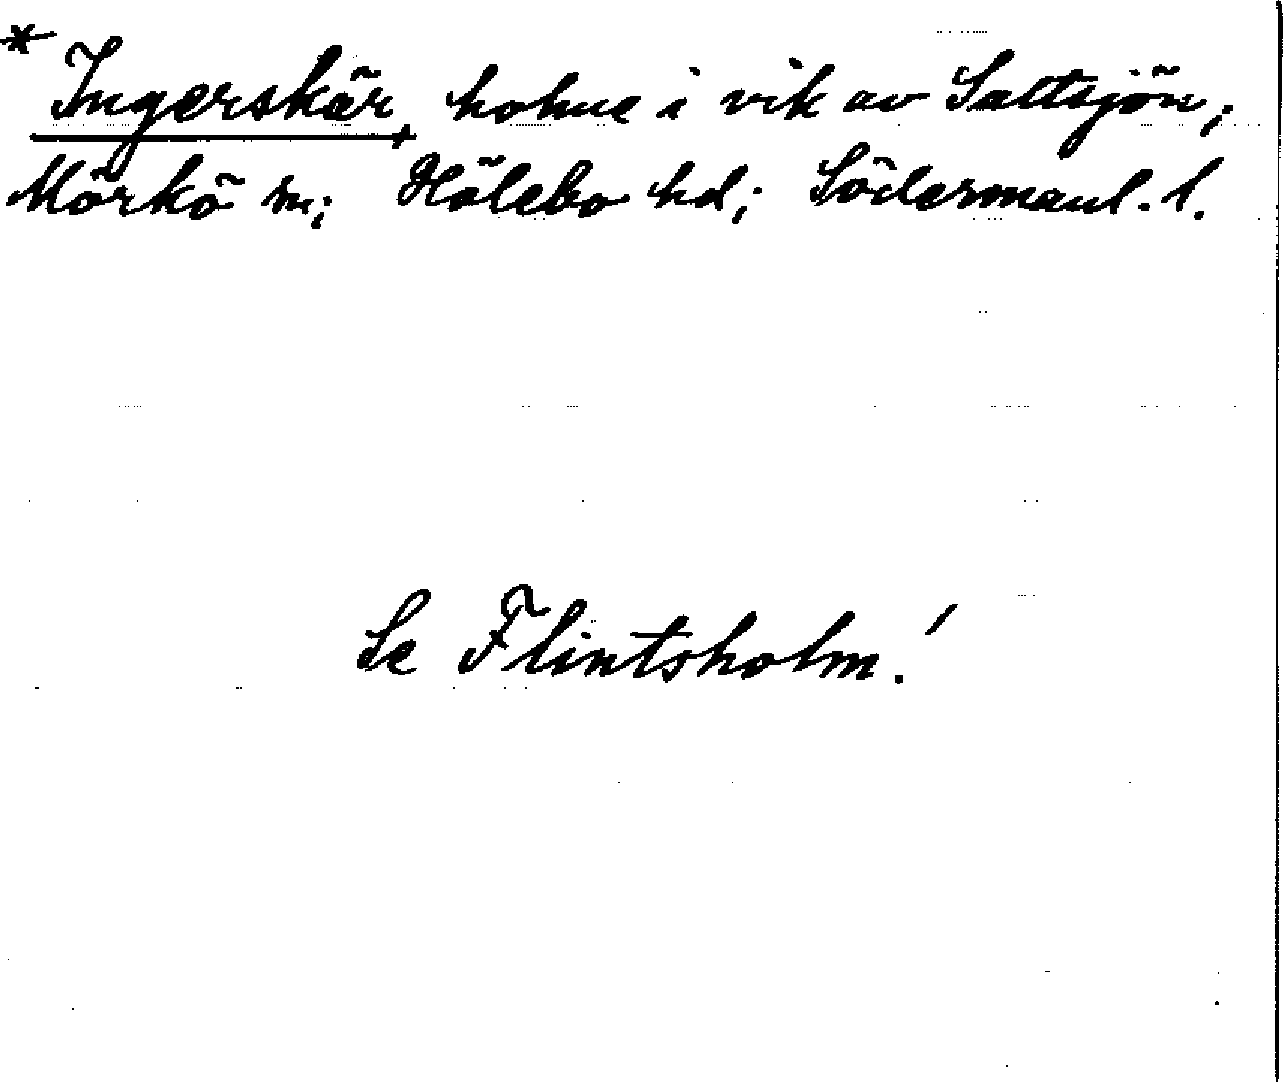 * Ingerskär, holme i vik av Saltsjön;
Mörkö sn; Hölebo hd; Södermanl. l.
Se Flintsholm!